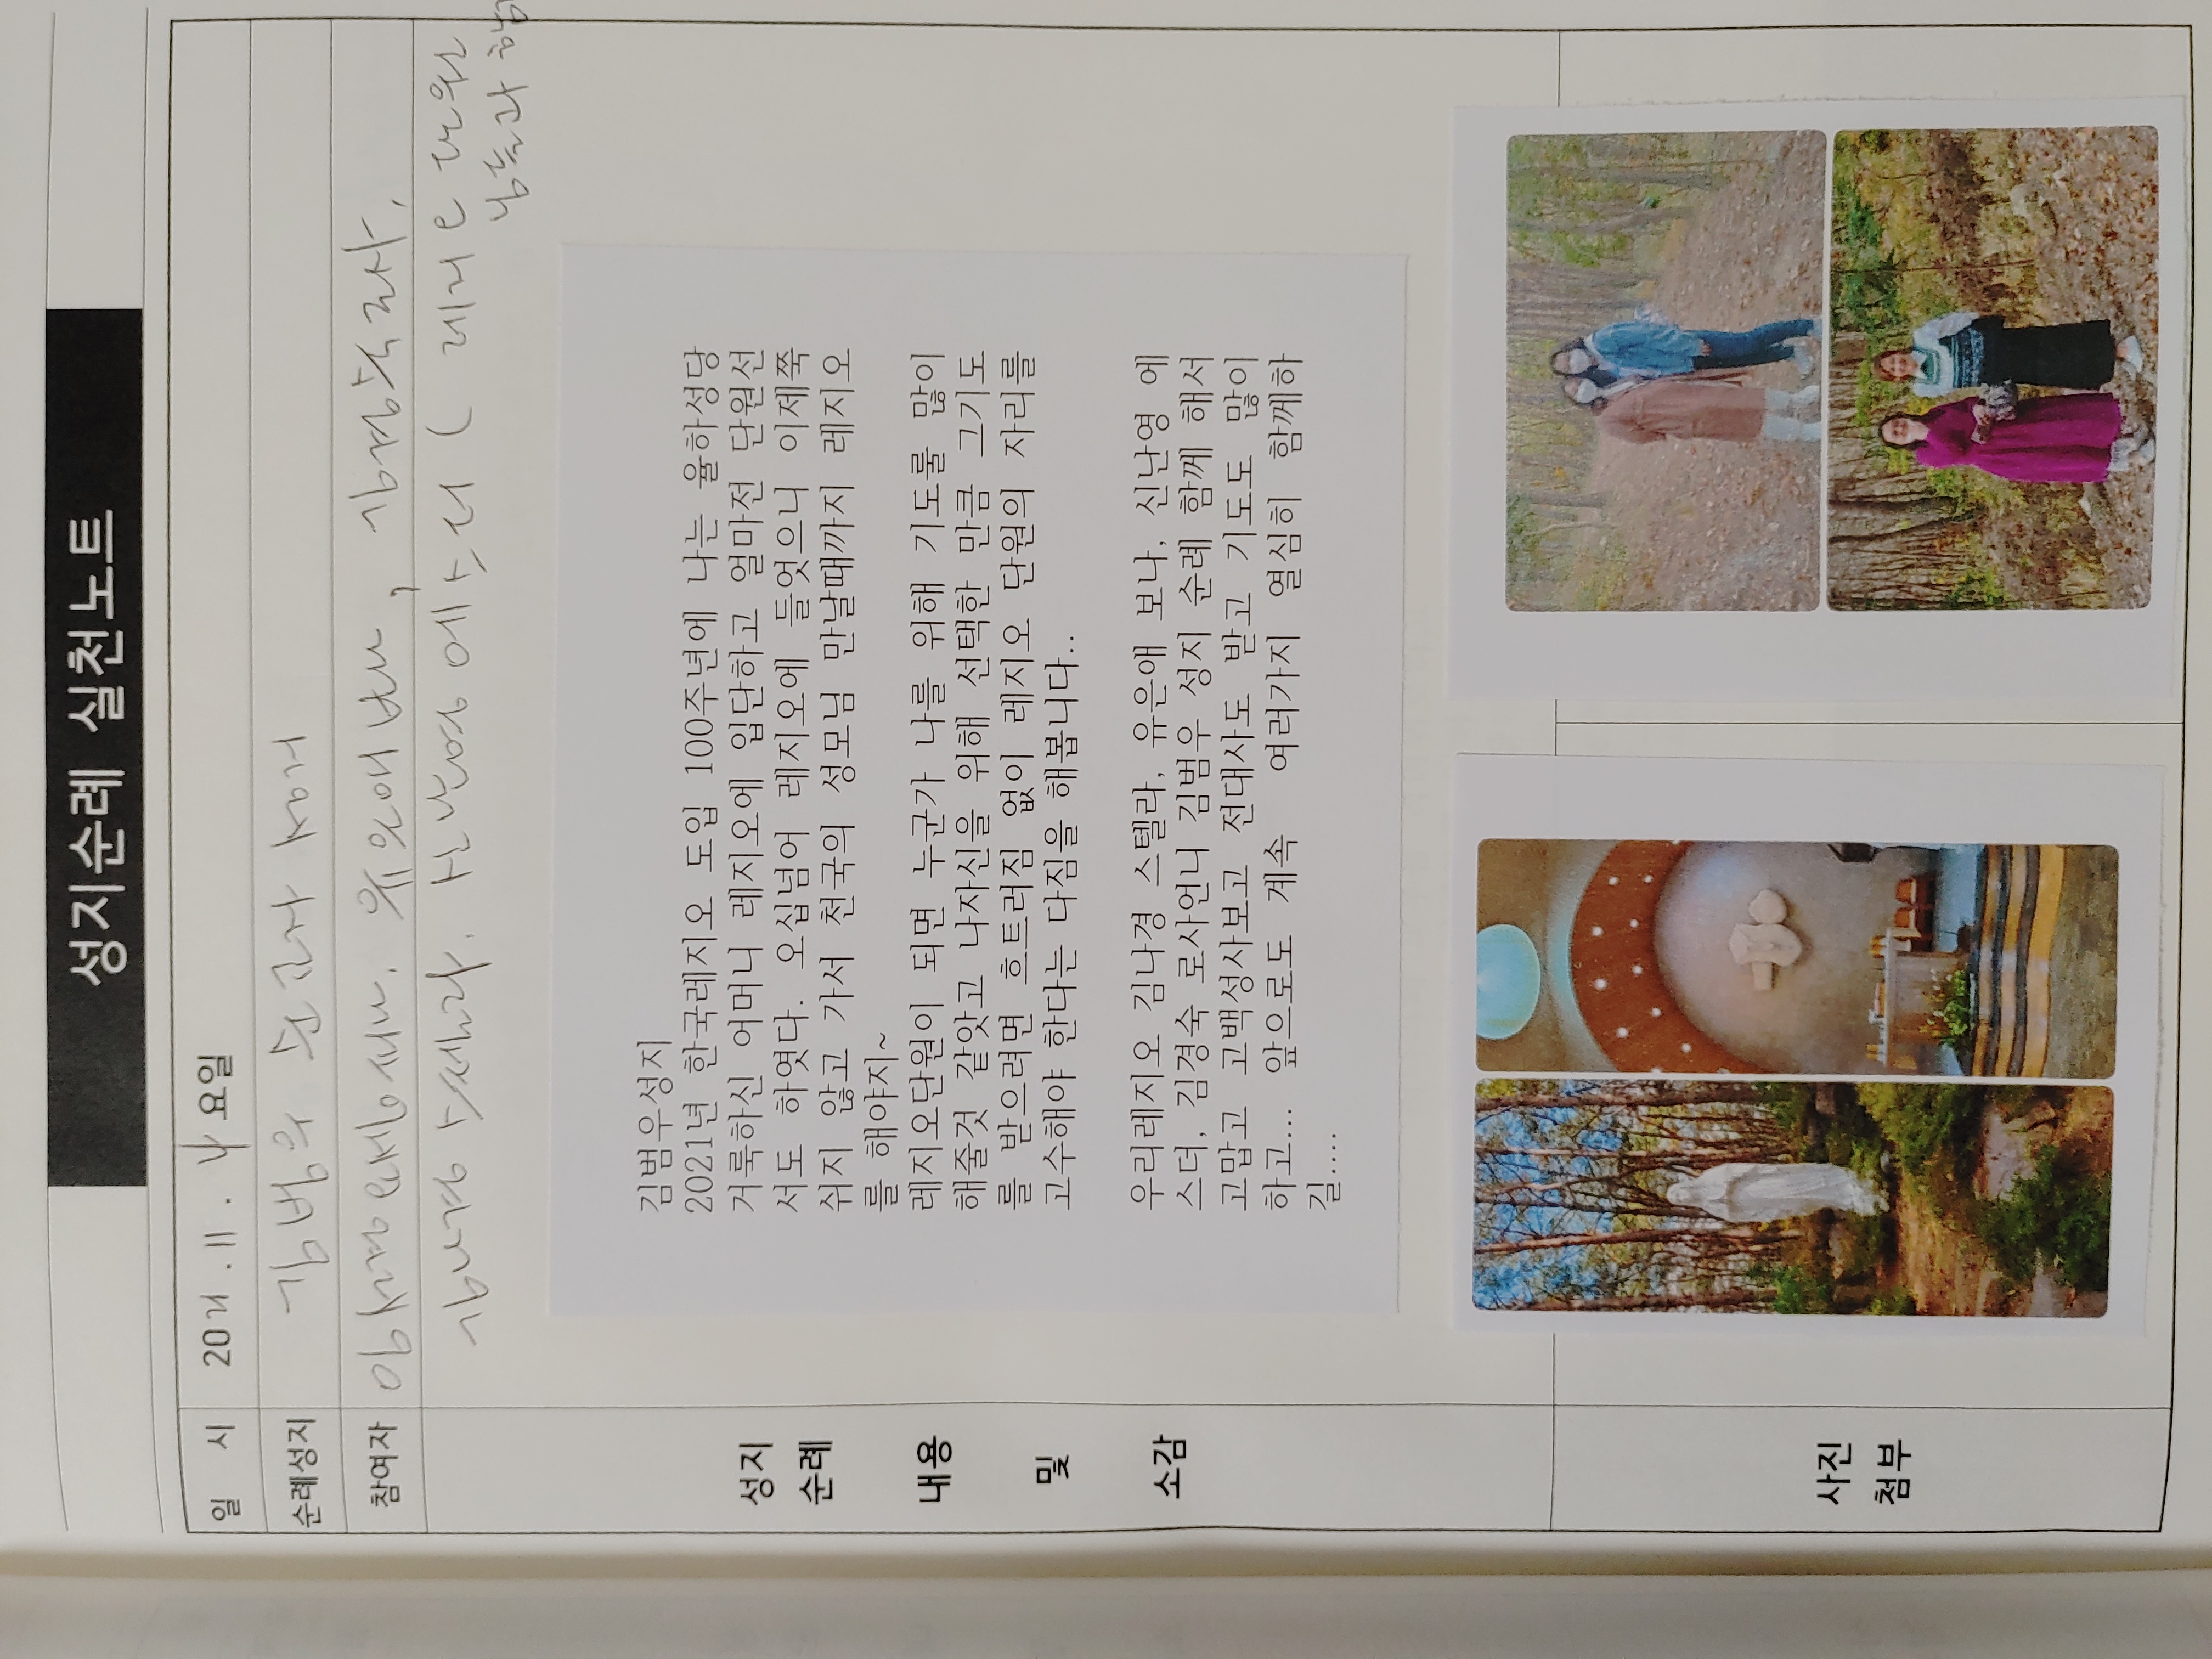 성지순례 실천노트
일 시 2021 . 11 . 4 요일
순례성지 김범우 순교자 성지
참여자 유은애 보나, 김경숙 로사,
김나경 스텔라, 신난영 에스더 ( 레지오 단원
님들과 함께
성지
순례
내용
및
소감
김범우성지
2021년 한국레지오 도입 100주년에 나는 율하성당
거룩하신 어머니 레지오에 입단하고 얼마전 단원선
서도 하였다. 오십넘어 레지오에 들엇으니 이제쭉
쉬지 않고 가서 천국의 성모님 만날때까지 레지오
를 해야지~
레지오단원이 되면 누군가 나를 위해 기도룰 많이
해줄것 같앗고 나자신을 위해 선택한 만큼 그기도
를 받으려면 흐트러짐 없이 레지오 단원의 자리를
고수해야 한다는 다짐을 해봅니다..
우리레지오 김나경 스텔라, 유은애 보나, 신난영 에
스더, 김경숙 로사언니 김범우 성지 순례 함께 해서
고맙고 고백성사보고 전대사도 받고 기도도 많이
하고... 앞으로도 계속 여러가지 열심히 함께하
길....
사진
첨부